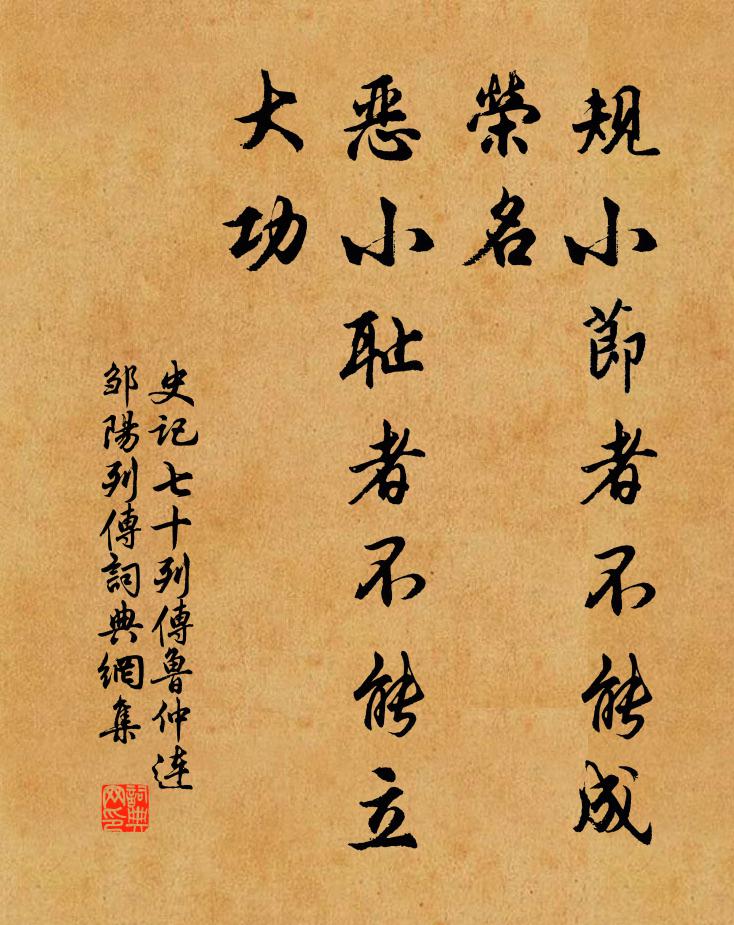 規小節者不能成
榮名
惡小耻者不能立
大功
史記七十列傳魯仲連
鄒陽列傳詞典網集
詞典
网印